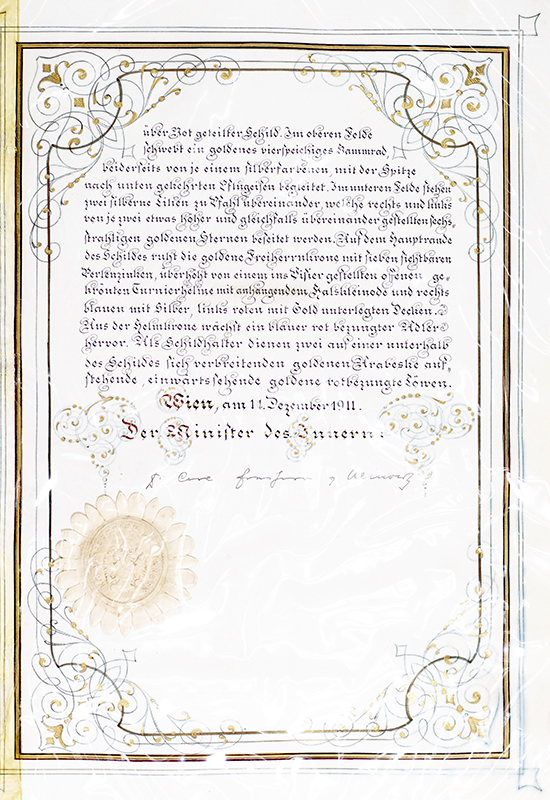 über Rot geteilter Schild. Im oberen Felde
schwebt ein goldenes vierspeichiges Kammrad,
beiderseits von je einem silberfarbenen, mit der Spitze
nach unten gekehrten Pflugeisen begleitet. Im unteren Felde stehen
zwei silberne Lilien zu Pfahl übereinander, welche rechts und links
von je zwei etwas höher und gleichfalls übereinander gestellten sechs-
strahligen goldenen Sternen beseitet werden. Auf dem Hauptrande
des Schildes ruht die goldene Freiherrnkrone mit sieben sichtbaren
Perlenzinken, überhöht von einem ins Visier gestellten offenen ge-
krönten Turnierhelme mit anhangendem Halskleinode und rechts
blauen mit Silber, links roten mit Gold unterlegten Decken.
Aus der Helmkrone wächst ein blauer rot bezungter Adler
hervor. Als Schildhalter dienen zwei auf einer unterhalb
des Schildes sich verbreitenden goldenen Arabeske auf-
stehende, einwärtssehende goldene rotbezungte Löwen.
Wien, am 11. Dezember 1911.
Der Minister des Innern: